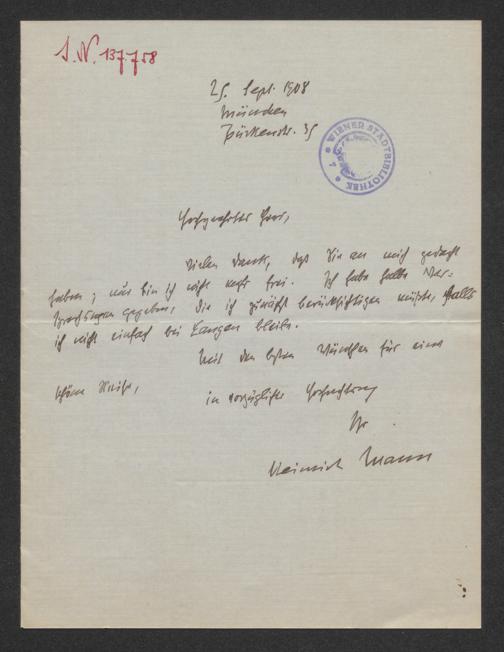 I. N. 137.758
25. Sept. 1908
München
Türkenstr. 35
WIENER STADTBIBLIOTHEK
Hochgeehrter Herr,
vielen Dank, daß Sie an mich gedacht
haben; nur bin ich nicht mehr frei. Ich habe halbe Ver=
sprechungen gegeben, die ich zunächst berücksichtigen müßte, falls
ich nicht einfach bei Langen bleibe.
Mit den besten Wünschen für eine
schöne Reise,
in vorzüglicher Hochachtung
Ihr
Heinrich Mann